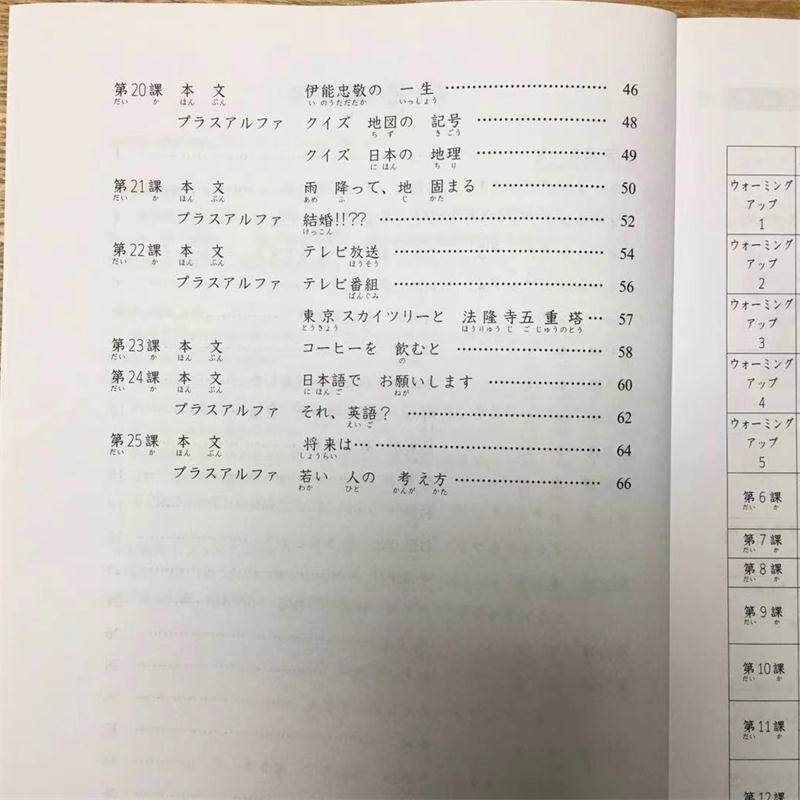 第20課 本文 伊能忠敬の 一生 …… 46
だい か ほん ぶん い のうただたか いっしょう
プラスアルファ クイズ 地図の 記号 …… 48
ち ず き ごう
クイズ 日本の 地理 …… 49
に ほん ち り
第21課 本文 雨 降って、地 固まる …… 50
だい か ほん ぶん あめ ふ じ かた
プラスアルファ 結婚!!?? …… 52
けっこん
第22課 本文 テレビ放送 …… 54
だい か ほん ぶん ほうそう
プラスアルファ テレビ番組 …… 56
ばんぐみ
東京スカイツリーと 法隆寺五重塔… 57
とうきょう ほうりゅう じ ご じゅうのとう
第23課 本文 コーヒーを 飲むと …… 58
だい か ほん ぶん の
第24課 本文 日本語で お願いします …… 60
だい か ほん ぶん に ほん ご ねが
プラスアルファ それ、英語? …… 62
えい ご
第25課 本文 将来は… …… 64
だい か ほん ぶん しょうらい
プラスアルファ 若い 人の 考え方 …… 66
わか ひと かんが かた
ウォーミング
アップ
1
ウォーミング
アップ
2
ウォーミング
アップ
3
ウォーミング
アップ
4
ウォーミング
アップ
5
第6課
だい か
第7課
だい か
第8課
だい か
第9課
だい か
第10課
だい か
第11課
だい か
第12課